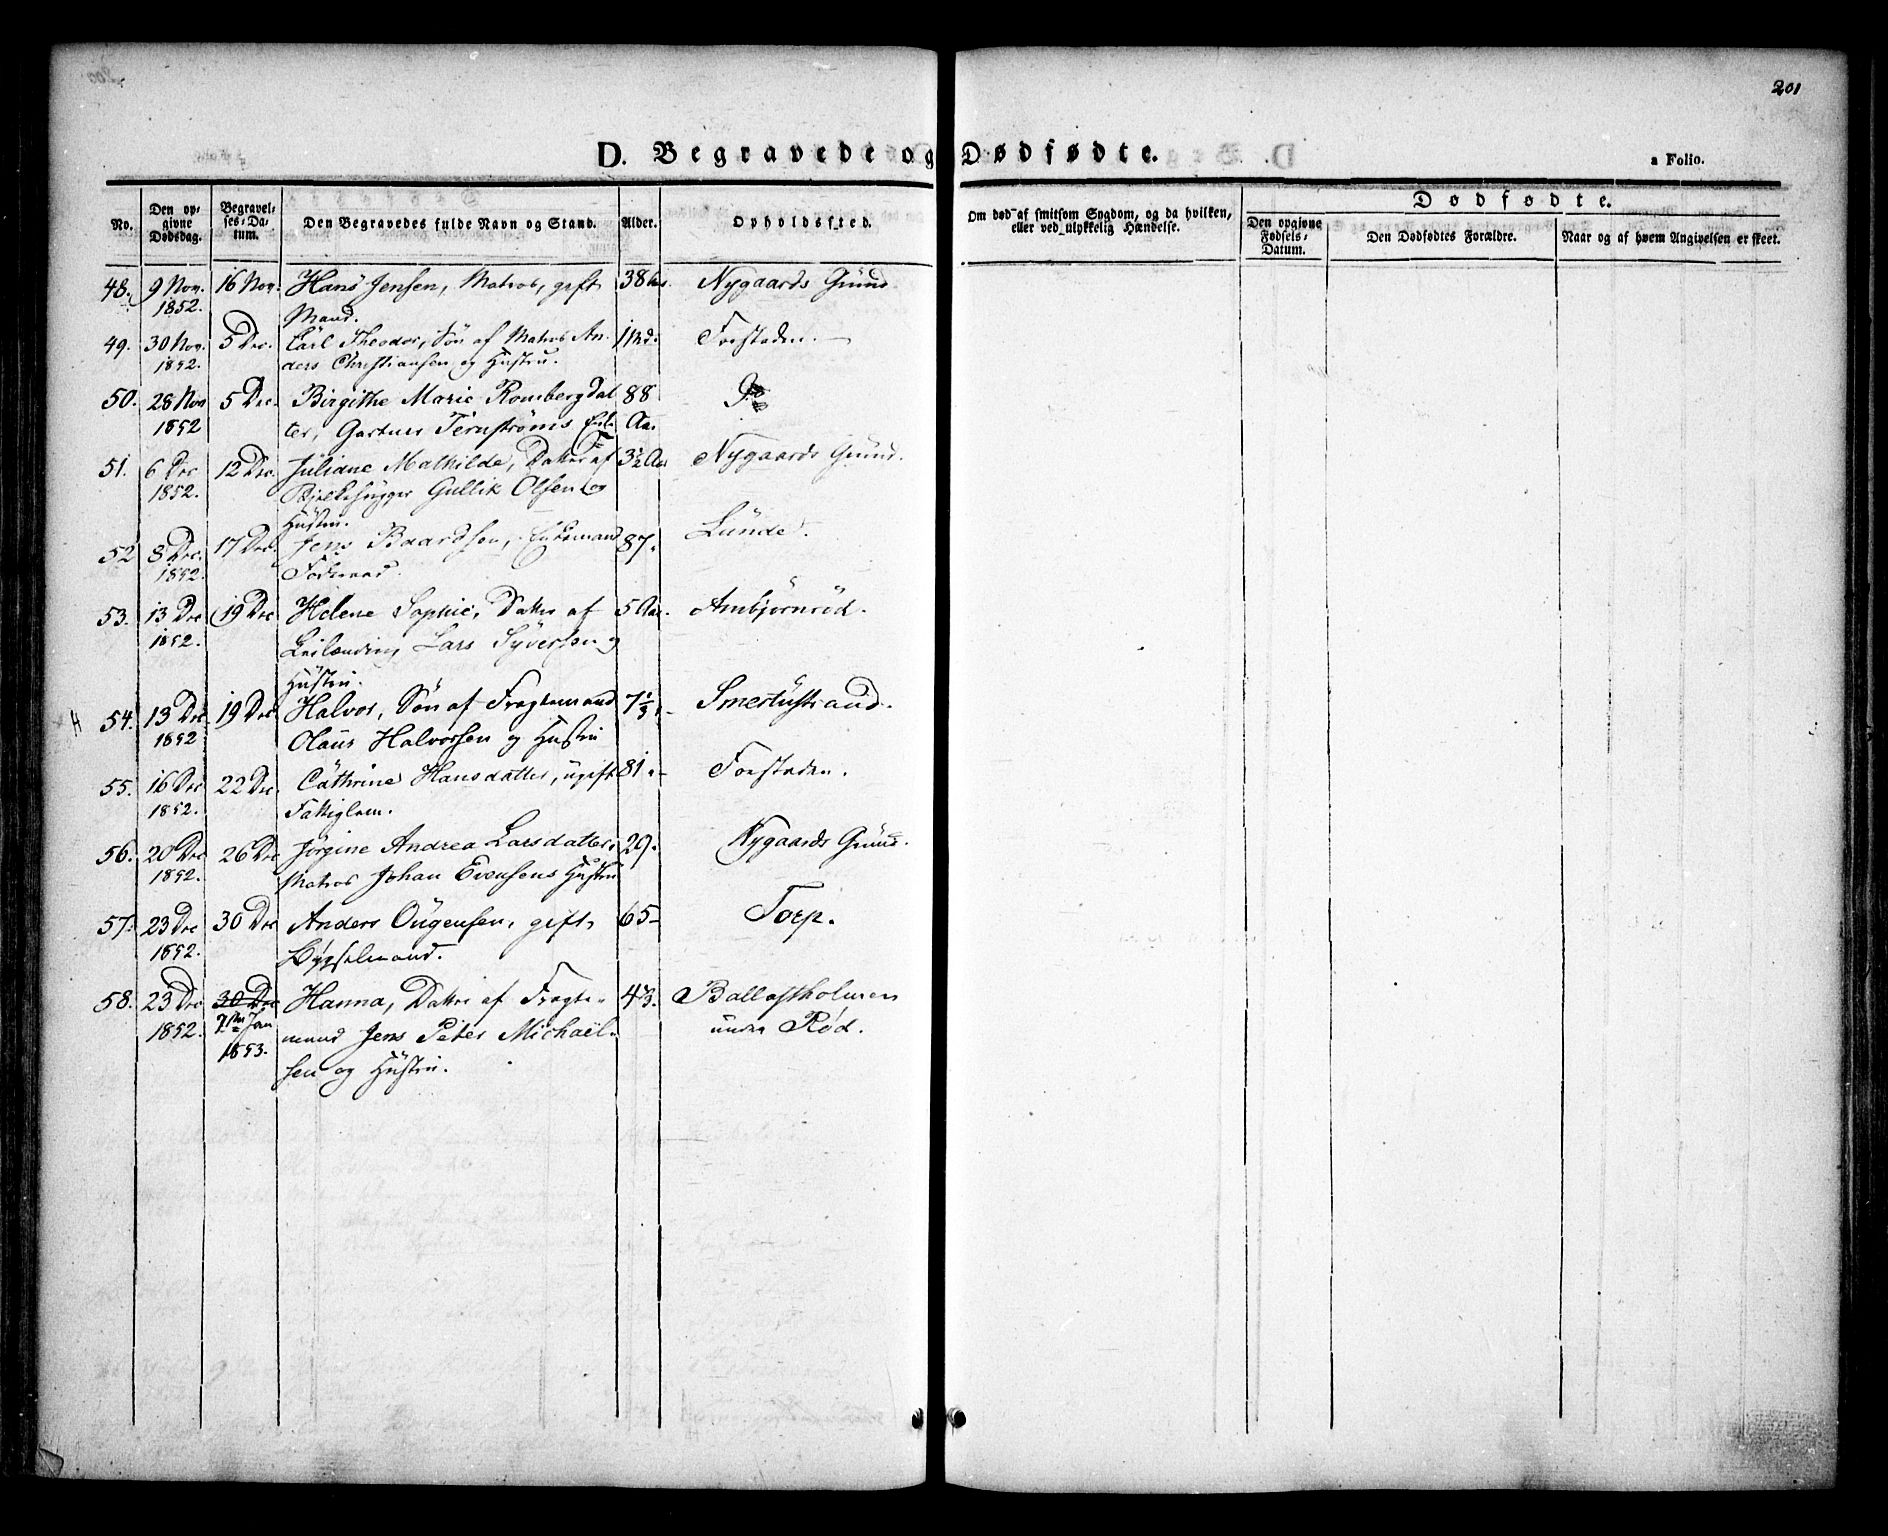 201
D. Begravede og Dødfødte.
a Folio.
No.
Den op-
givne
Dødsdag.
Begravel-
ses-Da-
tum.
Den Begravedes fulde Navn og Stand.
Alder.
Opholdssted.
Om død af smitsom Sygdom, og da hvilken,
eller ved ulykkelig Hændelse.
Dødfødte.
Den opgivne
Fødsels-
Datum.
Den Dødfødtes Forældre.
Naar og af hvem Angivelsen er skeet.
48. 9 Nov. 16 Nov. Hans Jensen, Matros, gift 38 Nygaards Grund
1852. Mand.
49. 30 Nov. 5 Dec. Carl Theodor, Søn af Matros An- 1 Md. Forstaden.
1852. ders Christiansen og Hustru.
50. 28 Nov 5 Dec. Birgithe Marie Romberg Dat 88
1852 ter, Gartner Ternstrøms Enke Aar
51. 6 Dec 12 Dec. Juliane Mathilde, Datter af 3½ Aar Nygaards Grund.
1852. Bjelkehugger Gullik Olsen og
Hustru.
52 8 Dec. 17 Dec. Jens Baardsen, Enkemand 87. Lunde.
1852. Føderaad.
53. 13 Dec 19 Dec Helene Sophie, Datter af 5 Aar. Ambjørnrød.
1852. Leilænding Lars Syversen og
Hustru.
54. 13 Dec 19 Dec Halvor, Søn af Fragtemand 7⅓ Smertustrand.
1852 Olaus Halvorsen og Hustru
55. 16 Dec 22 Dec Cathrine Hansdatter, ugift 81. Forstaden.
1852. Fattiglem.
56. 20 Dec 26 Dec Jørgine Andrea Larsdatter, 29. Nygaards Grund.
1852. Matros Johan Evensens Hustru
57. 23 Dec 30 Dec Anders Ougensen, gift 65 Torp.
1852. Bygselmand.
58. 23 Dec 30 Dec Hanna, Datter af Fragte- 43. Ballastholmen
1852. Jan mand Jens Peter Michael- under Rød.
1853. sen og Hustru.